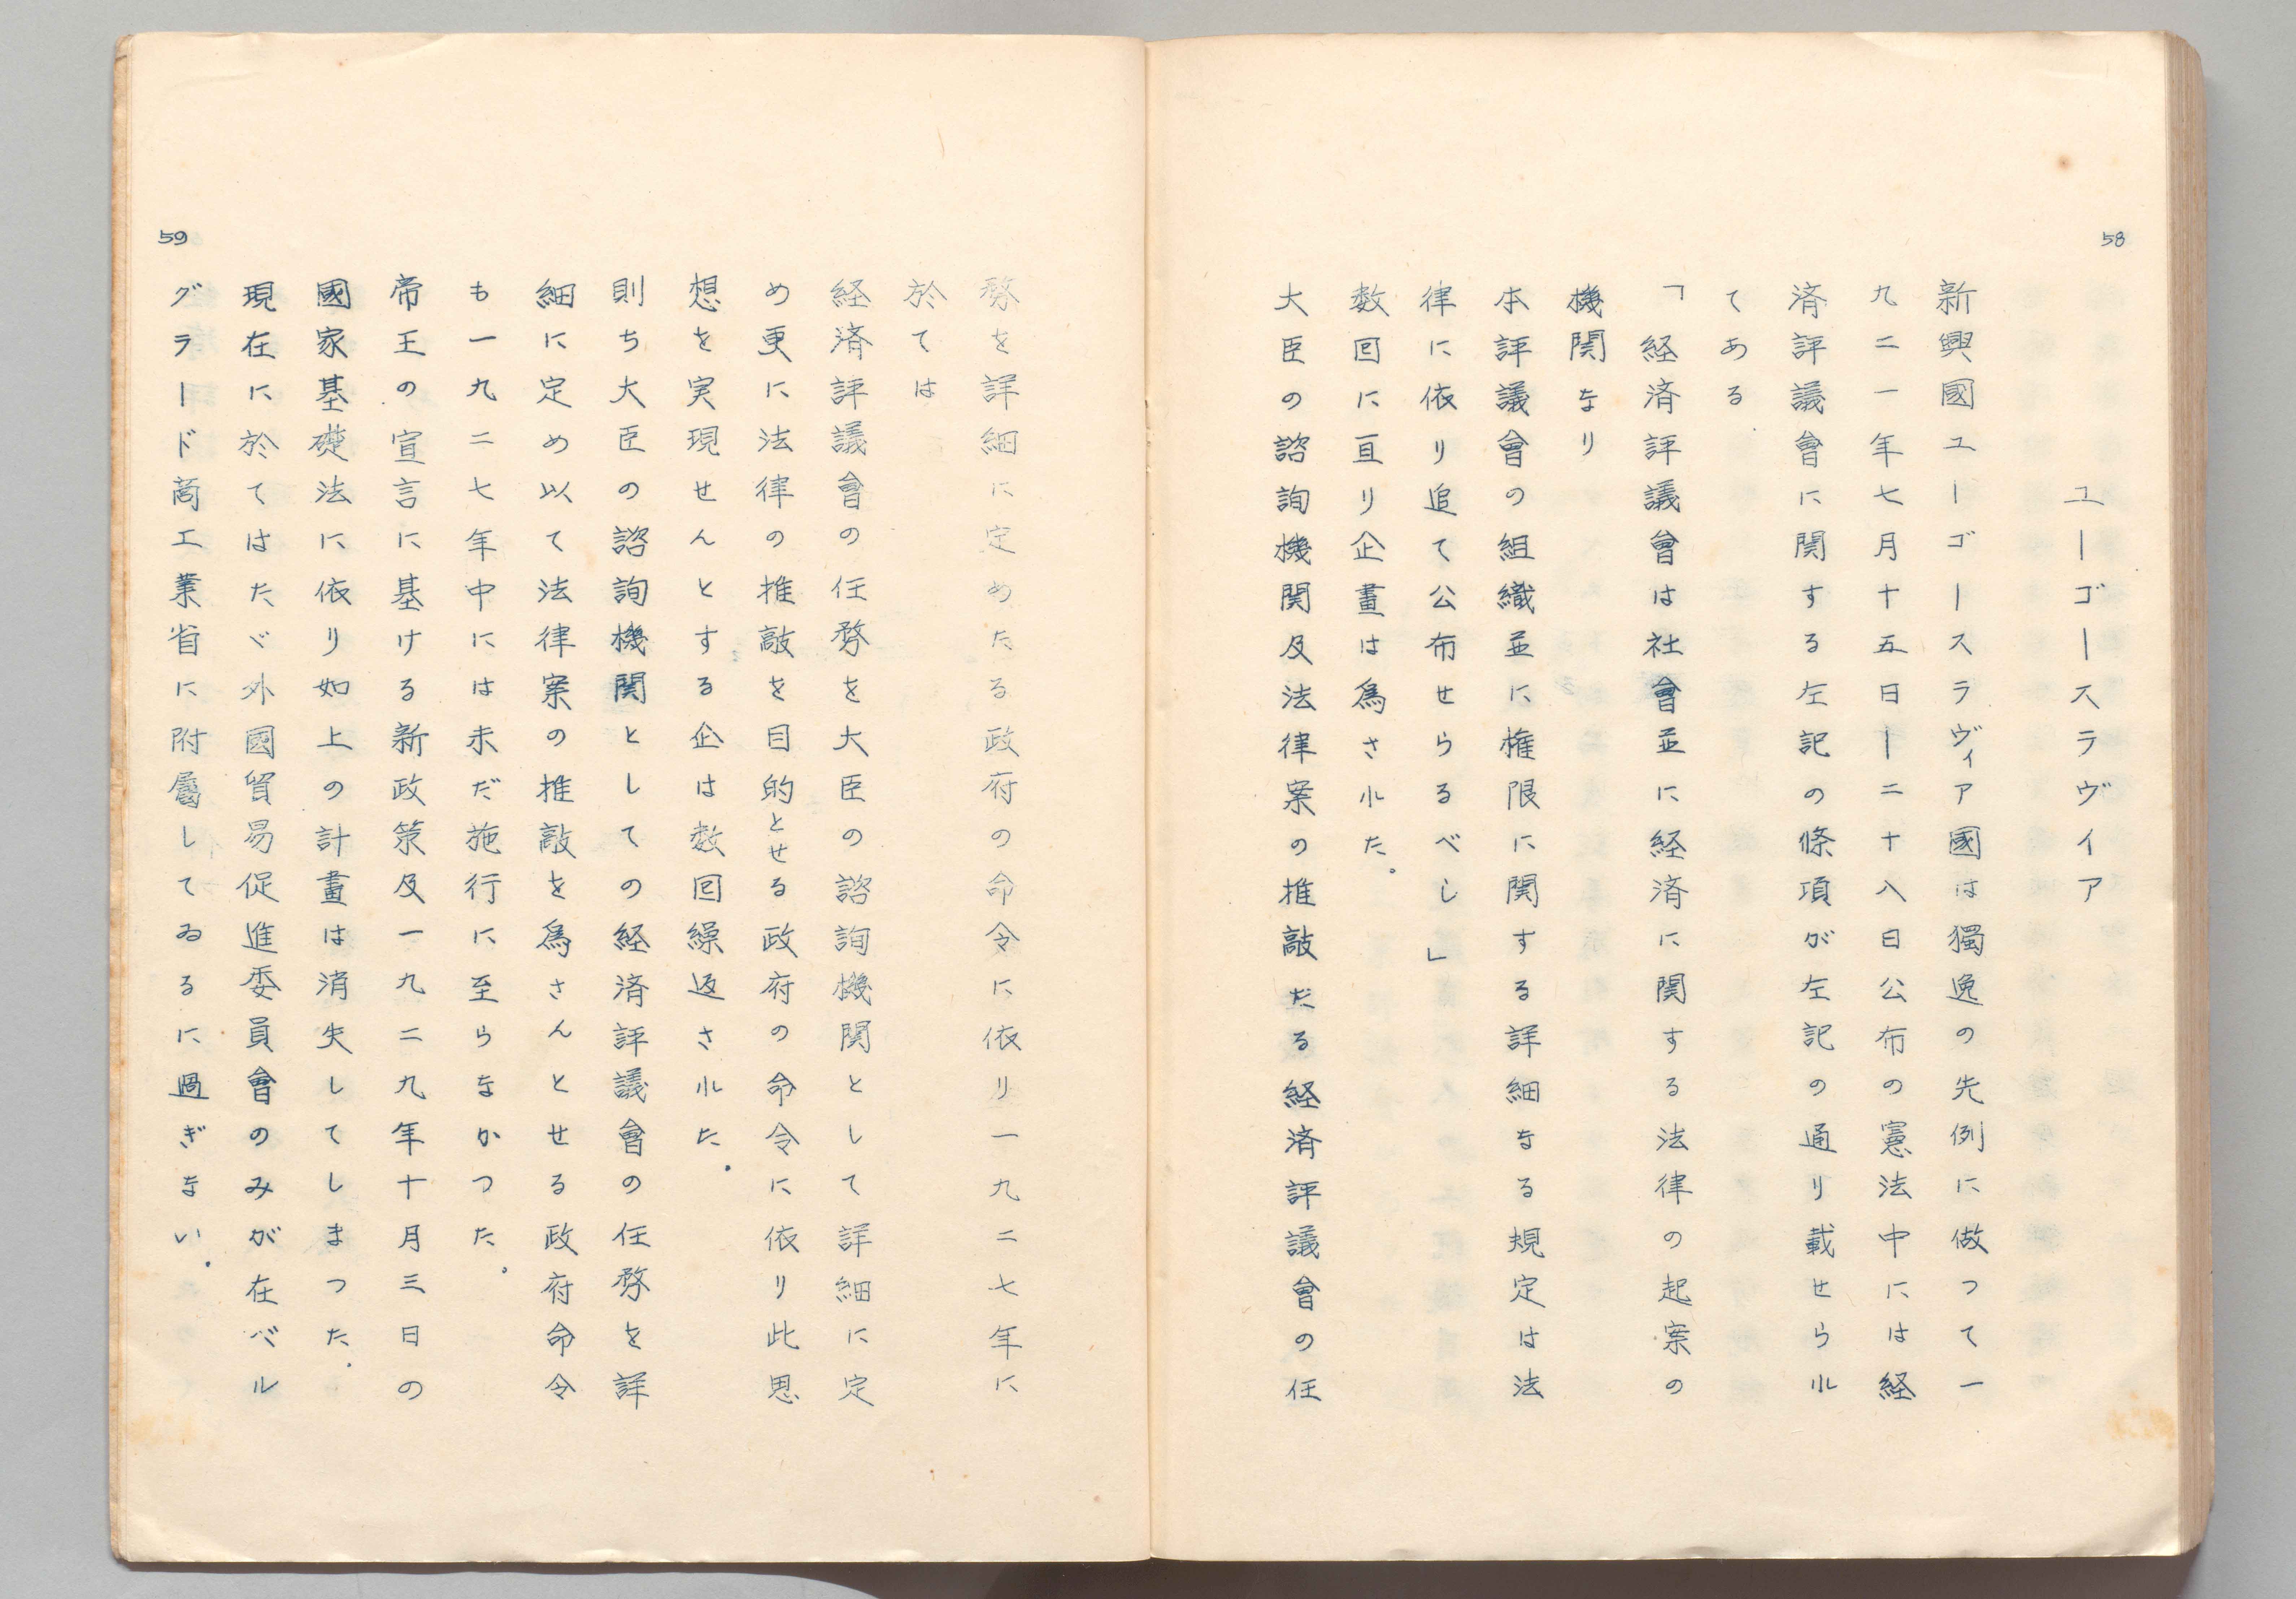 58
ユーゴースラヴイア
新興國ユーゴースラヴィア國は獨逸の先例に倣つて一
九二一年七月十五日ー二十八日公布の憲法中には経
済評議會に関する左記の條項が左記の通り載せられ
てある
「経済評議會は社會並に経済に関する法律の起案の
機関なり
本評議會の組織並に権限に関する詳細なる規定は法
律に依り追て公布せらるべし」
数回に亘り企畫は爲された。
大臣の諮詢機関及法律案の推敲たる経済評議會の任
務を詳細に定めたる政府の命令に依り一九二七年に
於ては
経済評議會の任務を大臣の諮詢機関として詳細に定
め更に法律の推敲を目的とせる政府の命令に依り此思
想を実現せんとする企は数回繰返された。
則ち大臣の諮詢機関としての経済評議會の任務を詳
細に定め以て法律案の推敲を爲さんとせる政府命令
も一九二七年中には未だ施行に至らなかつた。
帝王の宣言に基ける新政策及一九二九年十月三日の
國家基礎法に依り如上の計畫は消失してしまつた。
現在に於てはたゞ外國貿易促進委員會のみが在ベル
グラード商工業省に附屬してゐるに過ぎない。
59